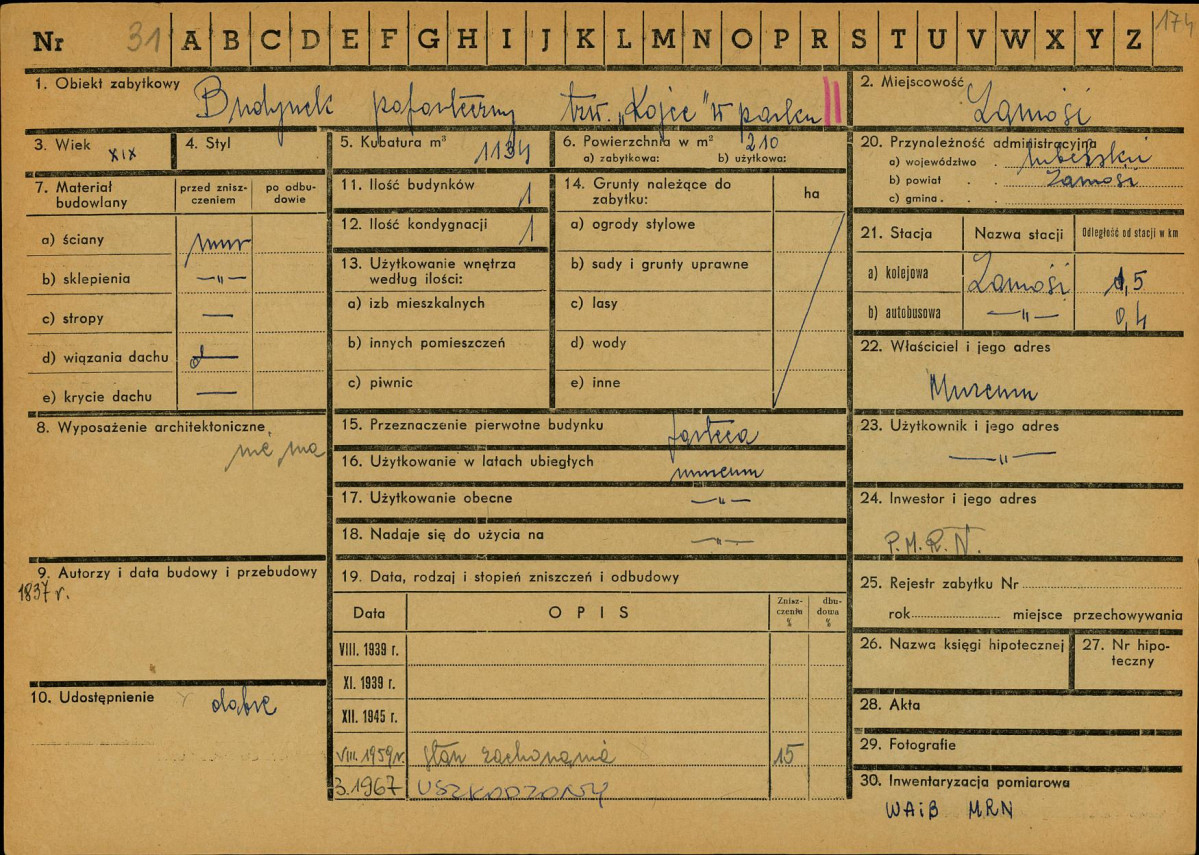 Nr 31 A B C D E F G H I J K L M N O P R S T U V W X Y Z 174
1. Obiekt zabytkowy Budynek poforteczny tzw. „Kojec” w parku
2. Miejscowość Zamość
3. Wiek XIX
4. Styl
5. Kubatura m³ 1134
6. Powierzchnia w m² 210
a) zabytkowa: b) użytkowa:
20. Przynależność administracyjna
a) województwo . lubelskie
b) powiat . . Zamość
c) gmina . . .
7. Materiał budowlany
przed zniszczeniem
po odbudowie
a) ściany mur
b) sklepienia —"—
c) stropy —
d) wiązania dachu d—
e) krycie dachu —
11. Ilość budynków 1
12. Ilość kondygnacji 1
13. Użytkowanie wnętrza
według ilości:
a) izb mieszkalnych
b) innych pomieszczeń
c) piwnic
14. Grunty należące do
zabytku:
ha
a) ogrody stylowe
b) sady i grunty uprawne
c) lasy
d) wody
e) inne
21. Stacja Nazwa stacji Odległość od stacji w km
a) kolejowa Zamość 1,5
b) autobusowa —"— 0,4
22. Właściciel i jego adres
Muzeum
8. Wyposażenie architektoniczne
nie ma
15. Przeznaczenie pierwotne budynku forteca
16. Użytkowanie w latach ubiegłych muzeum
17. Użytkowanie obecne —"—
18. Nadaje się do użycia na —"—
23. Użytkownik i jego adres
—"—
24. Inwestor i jego adres
P.M.R.N.
9. Autorzy i data budowy i przebudowy
1837 r.
10. Udostępnienie dobre
19. Data, rodzaj i stopień zniszczeń i odbudowy
Data OPIS Zniszczenia % dbudowa %
VIII. 1939 r.
XI. 1939 r.
XII. 1945 r.
VIII. 1959 r. stan zachowania 15
3.1967 USZKODZONY
25. Rejestr zabytku Nr
rok miejsce przechowywania
26. Nazwa księgi hipotecznej
27. Nr hipoteczny
28. Akta
29. Fotografie
30. Inwentaryzacja pomiarowa
WAiB MRN